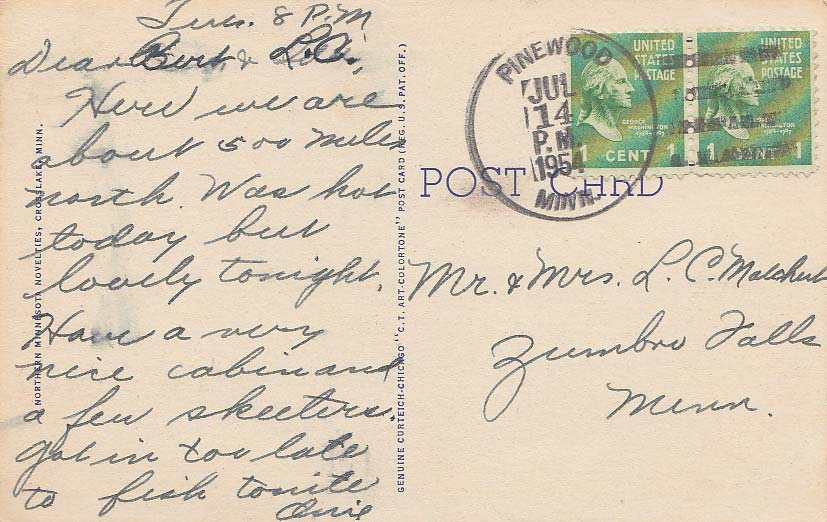 Tues. 8 P.M
Dear Bert & L.C.,
Here we are
about 500 miles
north. Was hot
today but
lovely tonight.
Have a very
nice cabin and
a few skeeters.
Got in too late
to fish tonite
NORTHERN MINNESOTA NOVELTIES, CROSSLAKE, MINN.
GENUINE CURTEICH-CHICAGO "C.T. ART-COLORTONE" POST CARD (REG. U.S. PAT. OFF.)
POST CARD
PINEWOOD
JUL
14
P.M
1954
MINN.
UNITED
STATES
POSTAGE
GEORGE
WASHINGTON
1 CENT 1
UNITED
STATES
POSTAGE
WASHINGTON
1 CENT 1
Mr. & Mrs. L. C. Malchert
Zumbro Falls
Minn.